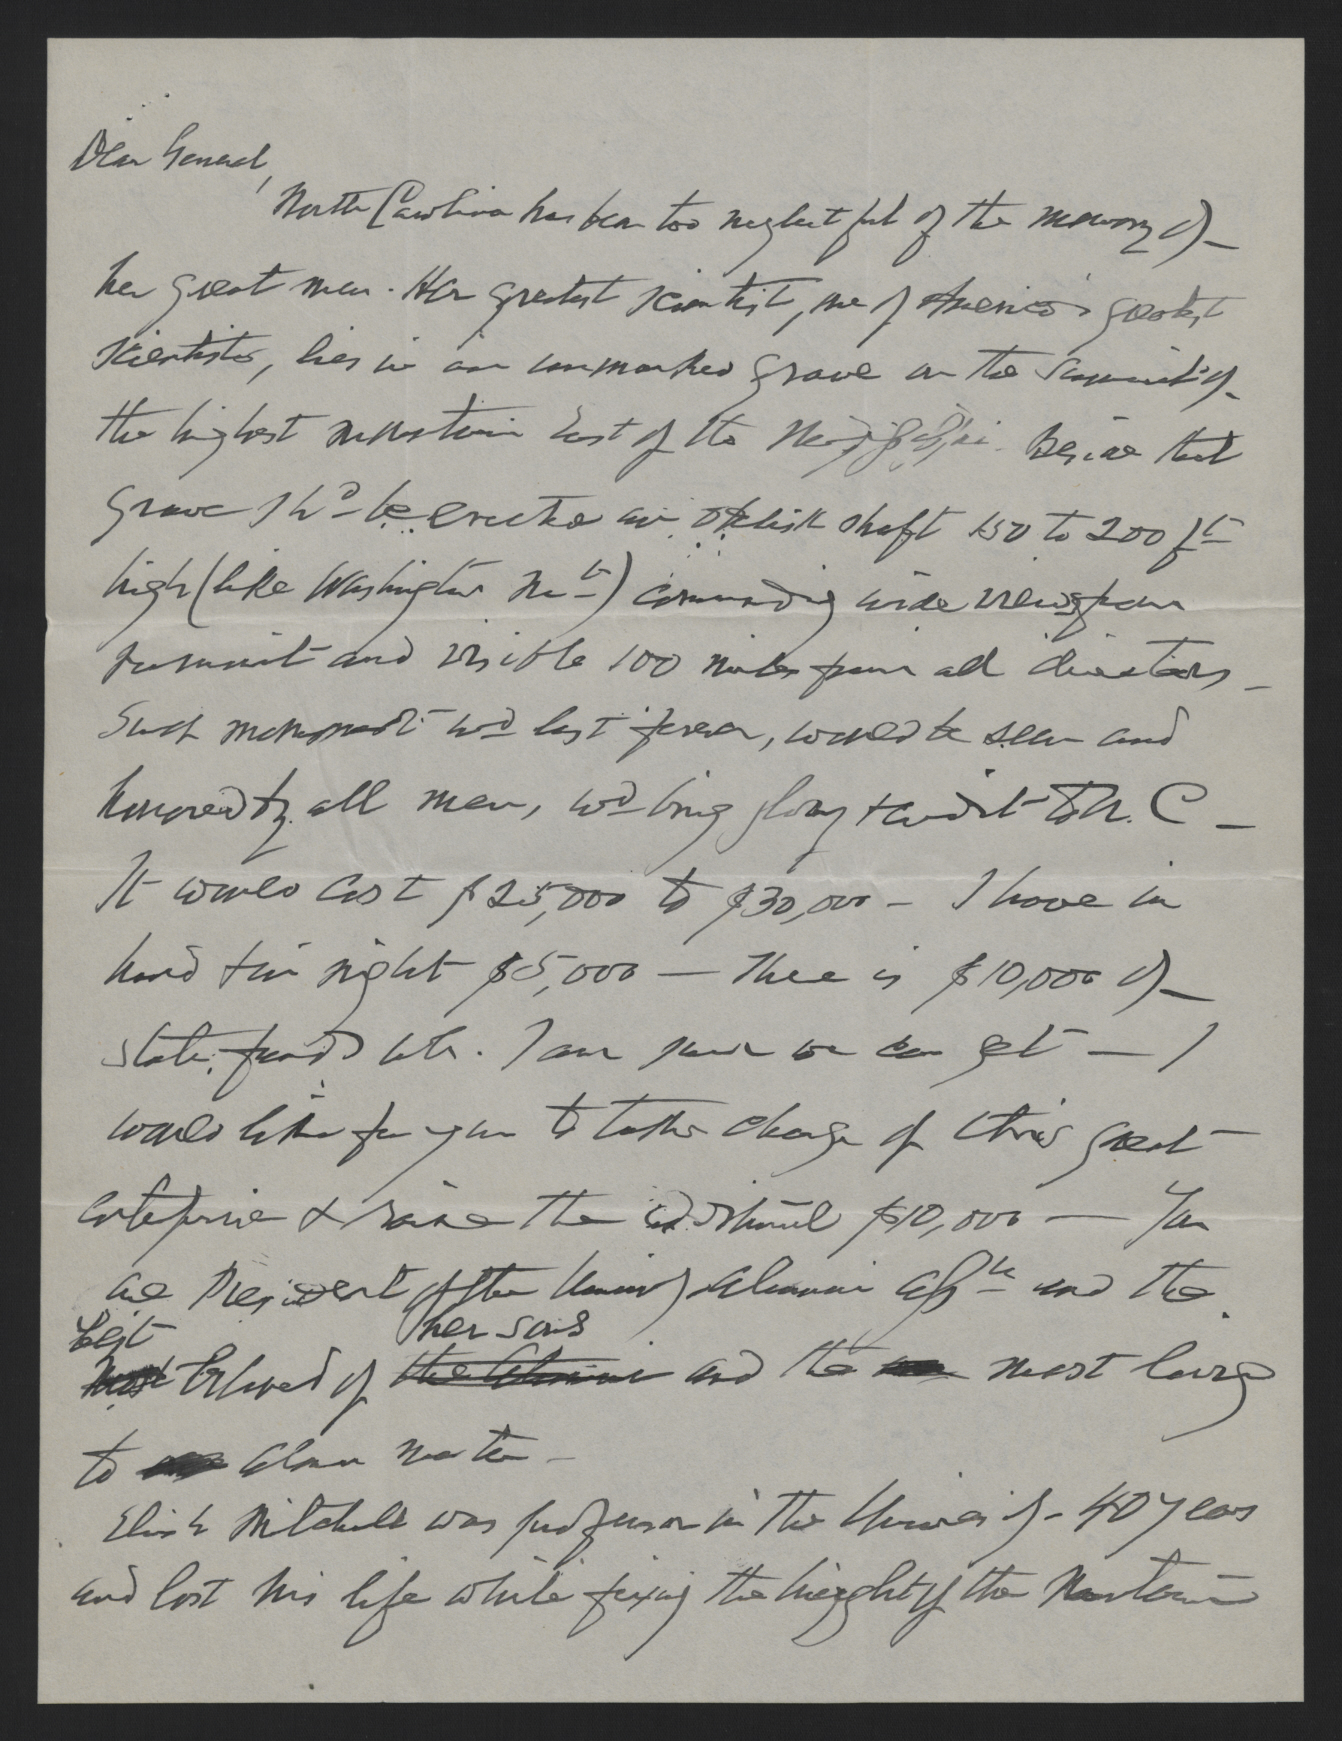 Dear General,
North Carolina has been too neglectful of the memory of
her great men. Her greatest scientist, one of America's greatest
scientists, lies in an unmarked grave on the summit of
the highest mountain East of the Mississippi. Beside that
grave shd be erected an obelisk shaft 150 to 200 ft
high (like Washington Mt) commanding wide views from
summit and visible 100 miles from all directions_
Such monument wd last forever, would be seen and
honored by all men, wd bring glory & credit to N. C_
It would cost $25,000 to $30,000 - I have in
hand & in sight $5,000 — There is $10,000 of
state funds wh. I am sure we can get — I
would like for you to take charge of this great
enterprise & raise the additional $10,000 — You
are President of the Univ Alumni Assn and the
best her sons
most beloved of the Alumni and the most loving
to alma mater_
Elisha Mitchell was professor in the University - 40 years
and lost his life while fixing the height of the Mountain